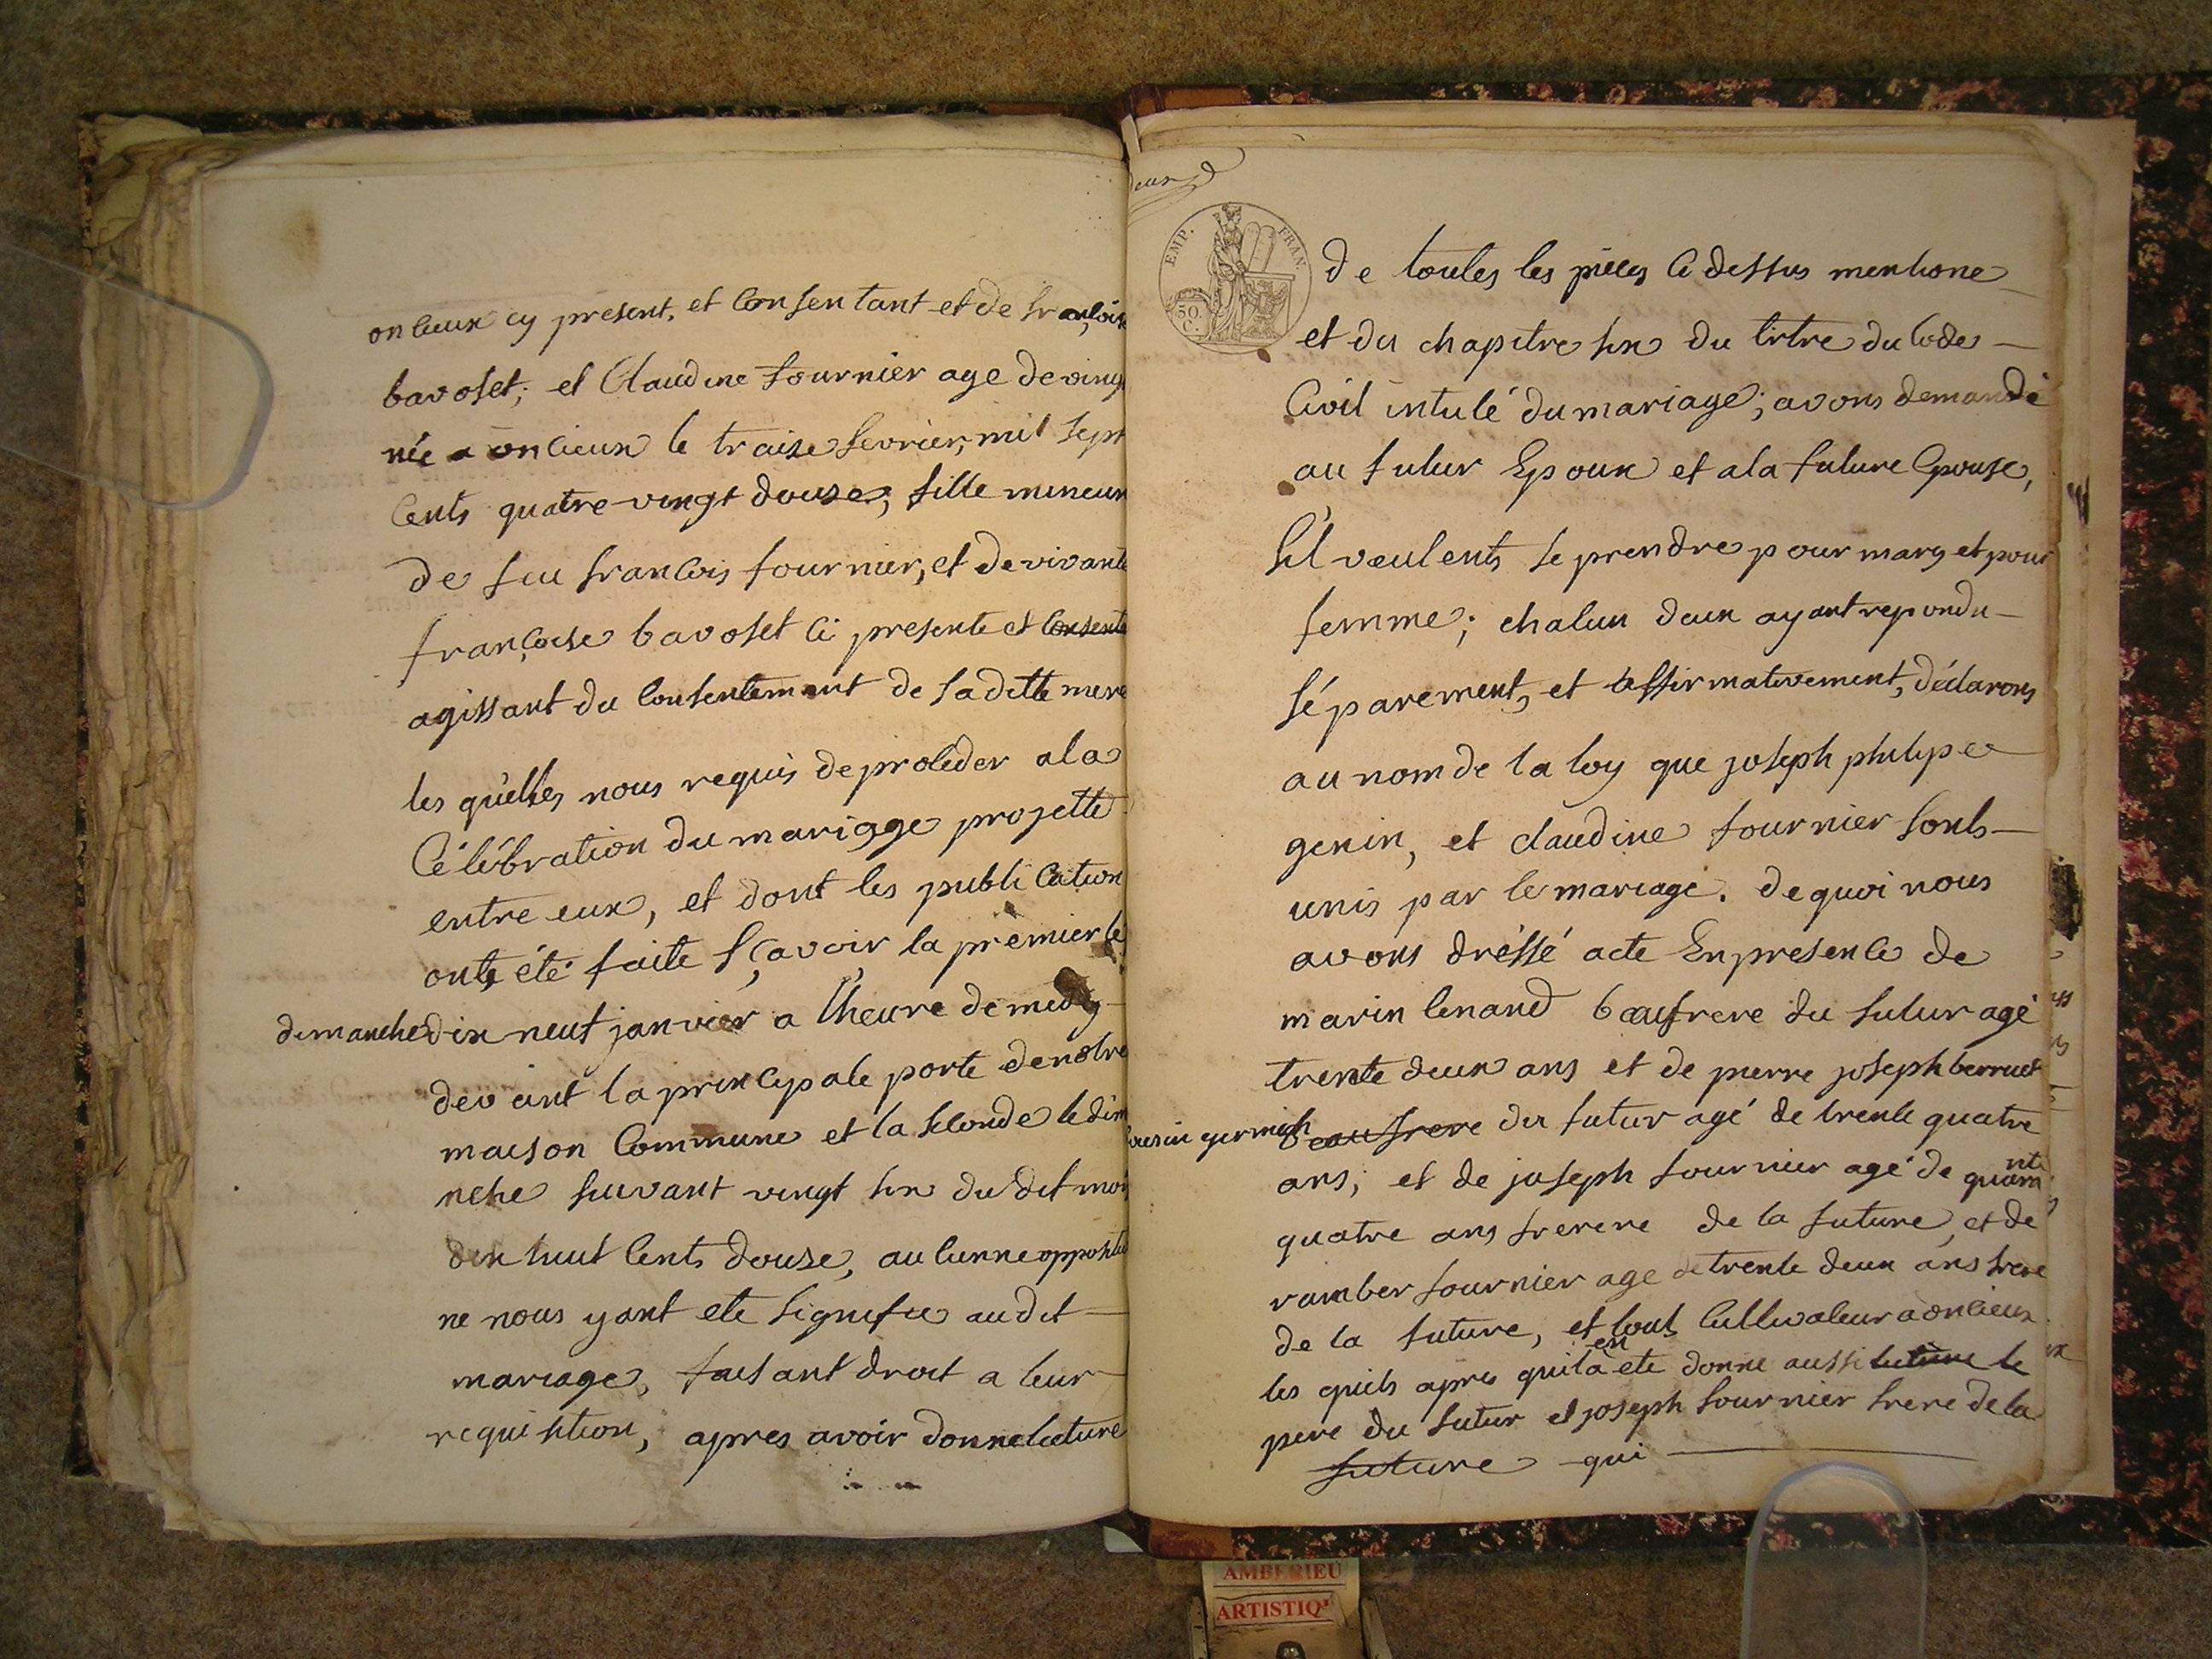 onlieux cy present, et Consentant et de françoise
bavoset; et Claudine fournier age de vingt
née a onlieux le traise fevrier, mil sept
Cents quatre-vingt douse; fille mineur
de feu francois fournier, et de vivante
françoise bavoset ci presente et consente
agissant du Consentement de sa ditte mere
les quelles nous requis de proceder a la
Célébration du mariage projetté
entre eux, et dont les publication
onts été faite sçavoir la premier le
dimanche dix neuf janvier a l'heure de midy
devant la principale porte de nôtre
maison Commune et la seconde le dim
nche suivant vingt six du dit mois
dix huit Cents douse, aucunne oppositio
ne nous yant ete signifie audit
mariage, faisant droit a leur
requisition, apres avoir donne lecture
EMP. FRAN.
50 C.
de toutes les pièces Ci dessus mentione
et du chapitre six du tirtre du Code
Civil intulé du mariage; avons demandé
au futur Epoux et a la future Epouse,
S'il veulents se prendre pour mary et pour
femme; chacun deux ayant repondu
séparement, et affirmativement, déclarons
au nom de la loy que joseph philipe
genin, et claudine fournier sonts
unis par le mariage. de quoi nous
avons dréssé acte En presence de
marin benand beaufrere du futur agé
trente deux ans et de pierre joseph berruet
cousin germain beaufrere du futur agé de trente quatre
ans, et de joseph fournier agé de quarante
quatre ans frerere de la future, et de
ramber fournier age de trente deux ans frere
de la future, et tous Cultivateur a onlieux
les quels apres quil en a ete donne aussi lecture le
pere du futur et joseph fournier frere de la
future qui
AMBERIEU
ARTISTIQ'